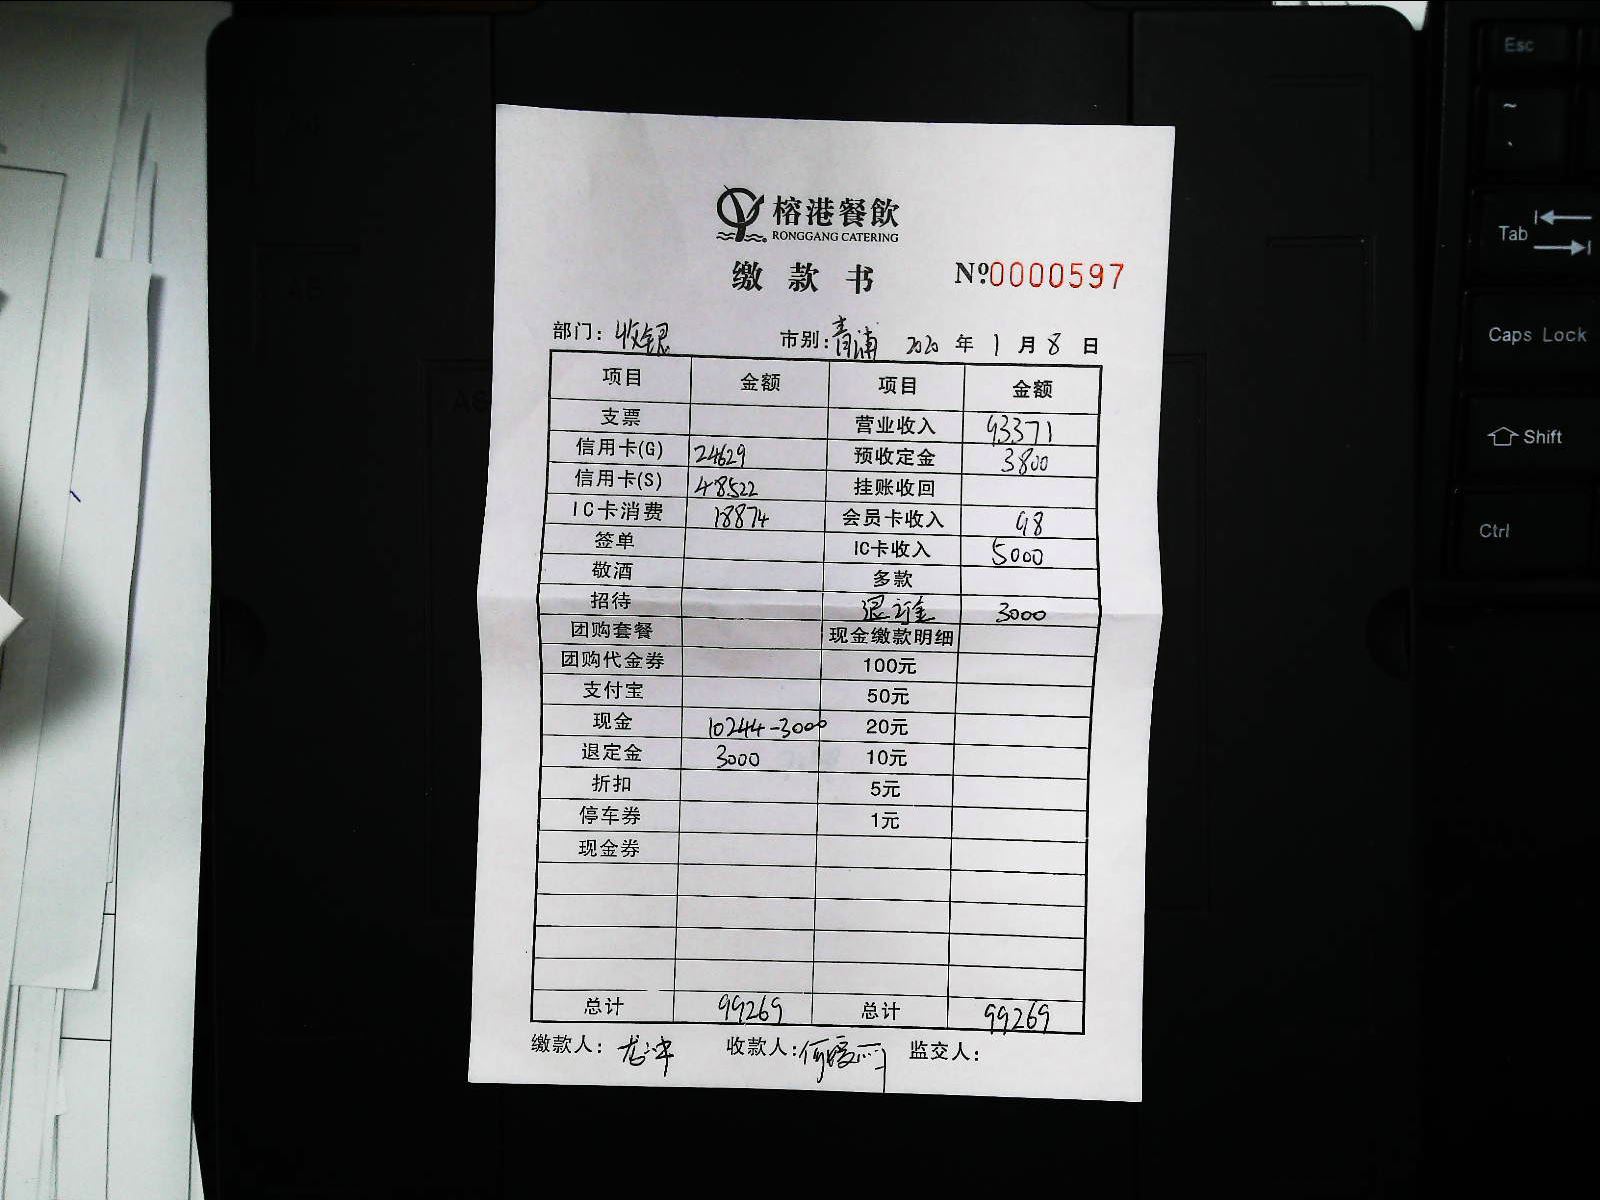 榕港餐飲
RONGGANG CATERING
缴款书 Nº:0000597
部门：收银 市别：青浦 2020年1月8日
项目 金额 项目 金额
支票 营业收入 93371
信用卡(G) 24629 预收定金 3800
信用卡(S) 48522 挂账收回
IC卡消费 18874 会员卡收入 98
签单 IC卡收入 5000
敬酒 多款
招待 退订金 3000
团购套餐 现金缴款明细
团购代金券 100元
支付宝 50元
现金 10244-3000 20元
退定金 3000 10元
折扣 5元
停车券 1元
现金券
总计 99269 总计 99269
缴款人： 收款人： 监交人：
Esc
~
、
Tab
Caps Lock
Shift
Ctrl